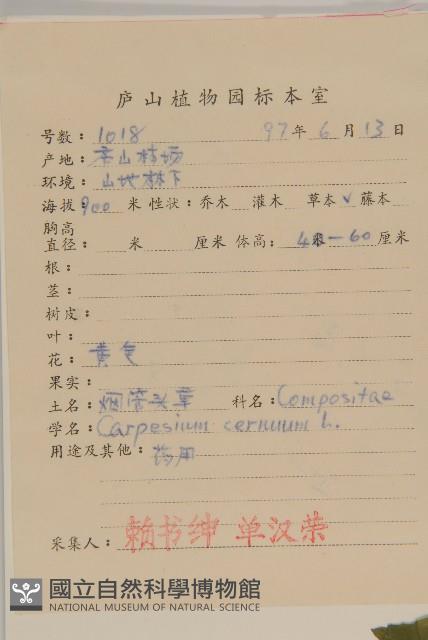 庐山植物园标本室
号数：1018 97年6月13日
产地：庐山林场
环境：山地林下
海拔：900米 性状：乔木 灌木 草本✓藤本
胸高
直径： 米 厘米 体高：40—60厘米
根：
茎：
树皮：
叶：
花：黄色
果实：
土名：烟管头草 科名：Compositae
学名：Carpesium cernuum L.
用途及其他：药用
采集人：赖书绅 单汉荣
國立自然科學博物館
NATIONAL MUSEUM OF NATURAL SCIENCE